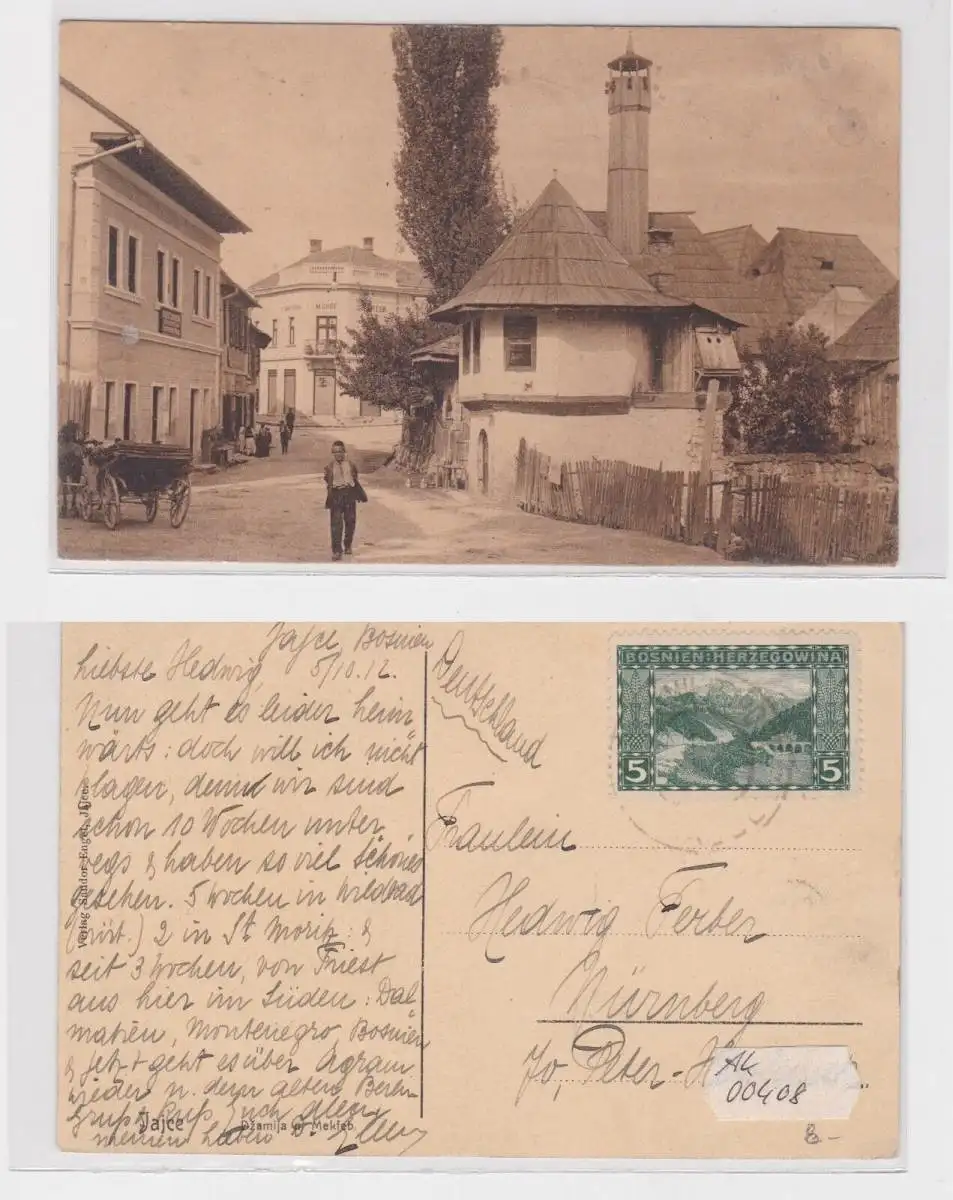 Jajce Bosnien
5/10.12.
Liebste Hedwig,
Nun geht es leider heim
wärts: doch will ich nicht
klagen, denn wir sind
schon 10 Wochen unter
wegs & haben so viel Schönes
gesehen. 5 Wochen in Wildbad
2 in St. Moritz: &
seit 3 Wochen, von Triest
aus hier im Süden: Dal
matien, Montenegro, Bosnien
& jetzt geht es über Agram
wieder n. dem alten
Gruß Kuß Euch allen
meinen lieben
Deutschland
Fräulein
Hedwig Ferber
Nürnberg
Peter-
BOSNIEN-HERZEGOWINA
5 5
Verlag Sándor Engel, Jajce.
Jajce Džamija oj Mekteb
AK
00408
8-